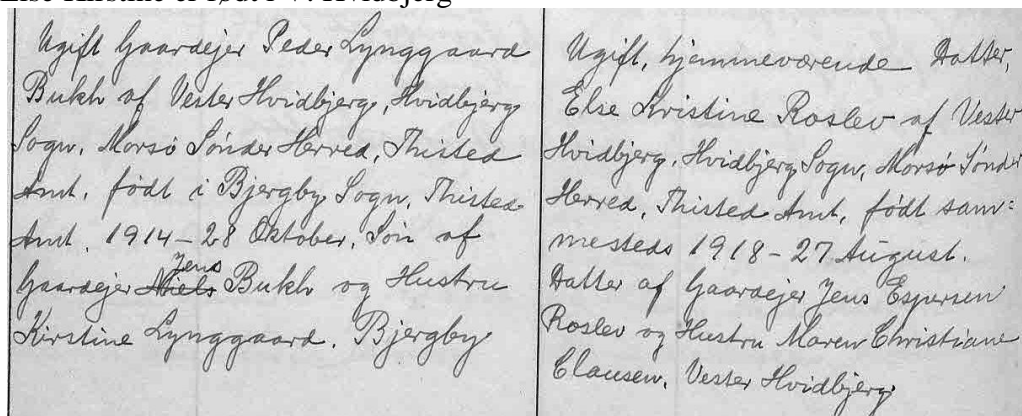 Else Kirstine er født i V. Hvidbjerg
Ugift Gaardejer Peder Lynggaard
Bukh af Vester Hvidbjerg, Hvidbjerg
Sogn, Morsø Sønder Herred, Thisted
Amt, født i Bjergby Sogn, Thisted
Amt, 1914-28 Oktober, Søn af
Jens
Gaardejer Niels Bukh og Hustru
Kirstine Lynggaard, Bjergby
Ugift, hjemmeværende Datter,
Else Kristine Roslev af Vester
Hvidbjerg, Hvidbjerg Sogn, Morsø Sønder
Herred, Thisted Amt, født sam=
mesteds 1918-27 August.
Datter af Gaardejer Jens Espersen
Roslev og Hustru Maren Christiane
Clausen, Vester Hvidbjerg